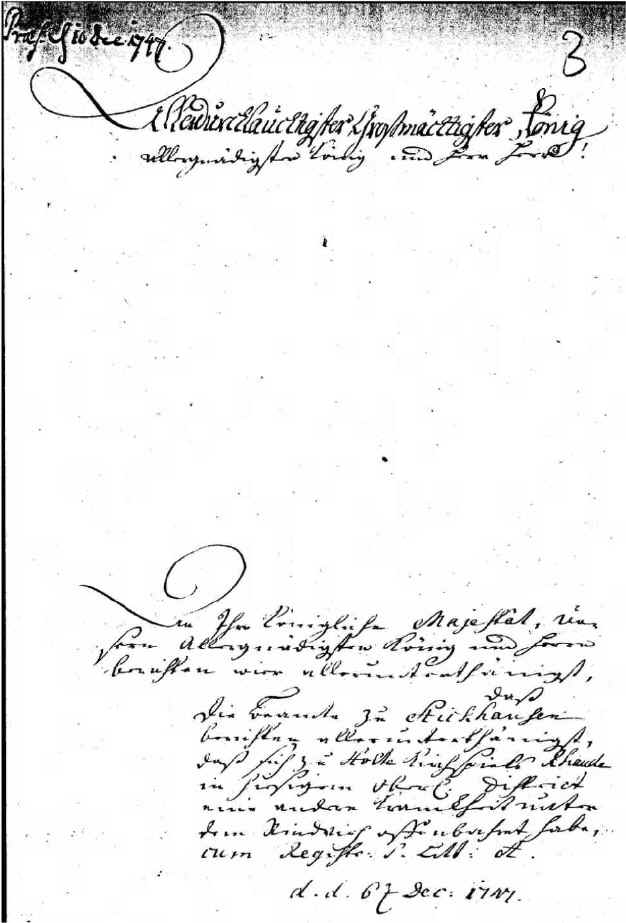 Præs. d 10 Dec 1747.
3
Allerdurchlauchtigster Großmächtigster König
allergnädigster König und Herr Herr!
An Ihro Königliche Majestät, Un-
sern Allergnädigsten König und Herrn
berichten wir allerunterthänigst,
daß
Die Beamte zu Stickhausen
berichten allerunterthänigst,
daß sich zu Holte Kirchspiels Rhaude
in hiesigem District
eine andere Kranckheit unter
dem Rindvieh offenbahret habe,
cum Registr: S. Litt: A.
d. d. Dec: 1747.